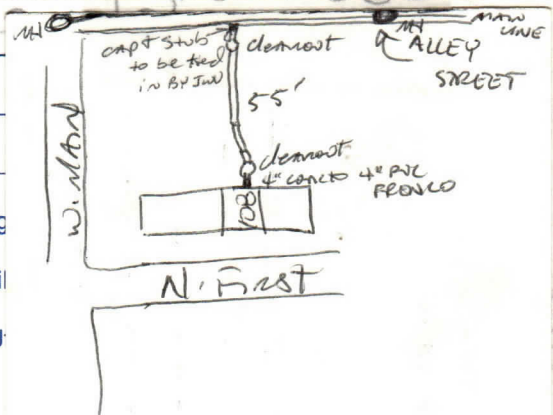 MH
MAIN
LINE
MH
ALLEY
STREET
CAP & STUB
TO BE TIED
IN BY
cleanout
55'
cleanout
4" CONC TO 4" PVC
FERNCO
108
W. MAIN
N. FIRST